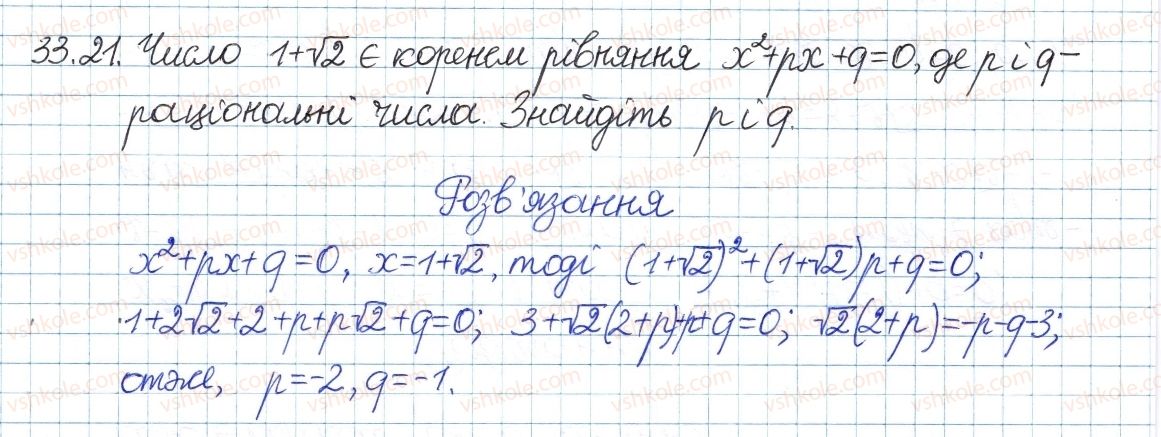 33.21. Число 1+√2 є коренем рівняння x²+px+q=0, де p і q –
раціональні числа. Знайдіть p і q.
Розв'язання
x²+px+q=0, x=1+√2, тоді (1+√2)²+(1+√2)p+q=0;
1+2√2+2+p+p√2+q=0; 3+√2(2+p)+p+q=0; √2(2+p)=-p-q-3;
отже, p=-2, q=-1.